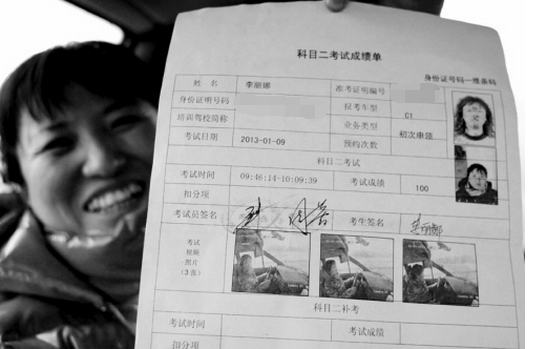 科目二考试成绩单
身份证号码一维条码
姓 名 李丽娜 准考证明编号
身份证明号码 报考车型 C1
培训驾校简称 业务类型 初次申领
考试日期 2013-01-09 预约次数
科目二考试
考试时间 09:46:14-10:09:39 考试成绩 100
扣分项
考试员签名 考生签名 李丽娜
考试
视频
照片
(3张)
科目二补考
考试时间 考试成绩
扣分项